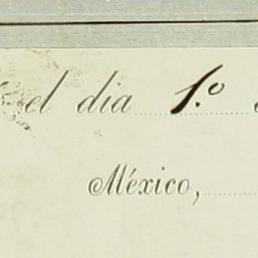 el dia 1.º
México,